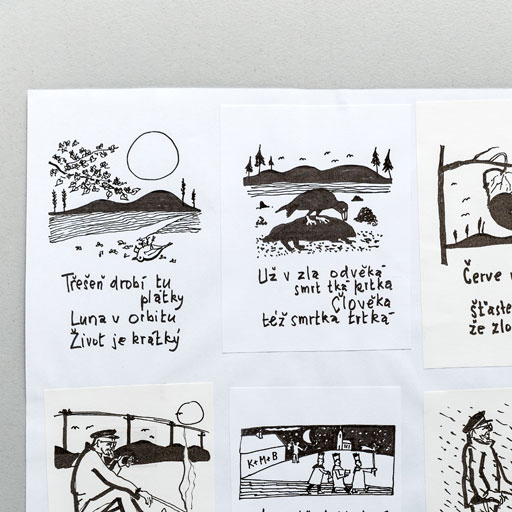 Třešeň drobí tu
plátky
Luna v orbitu
Život je krátký
Už v zla odvěká
smrt tká krtka
Člověka
též smrtka trtká
Červe
šťaste
že zlo
K+M+B